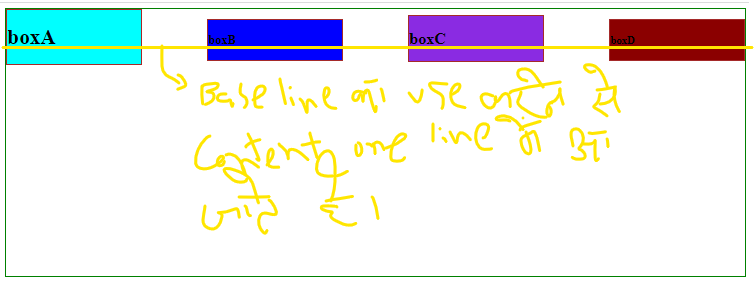 boxA boxB boxC boxD
Baseline का use करने से
Content one line में आ
जाते है।